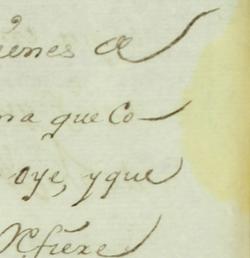 ienes de
ma que Co-
oye, y que
Refiere